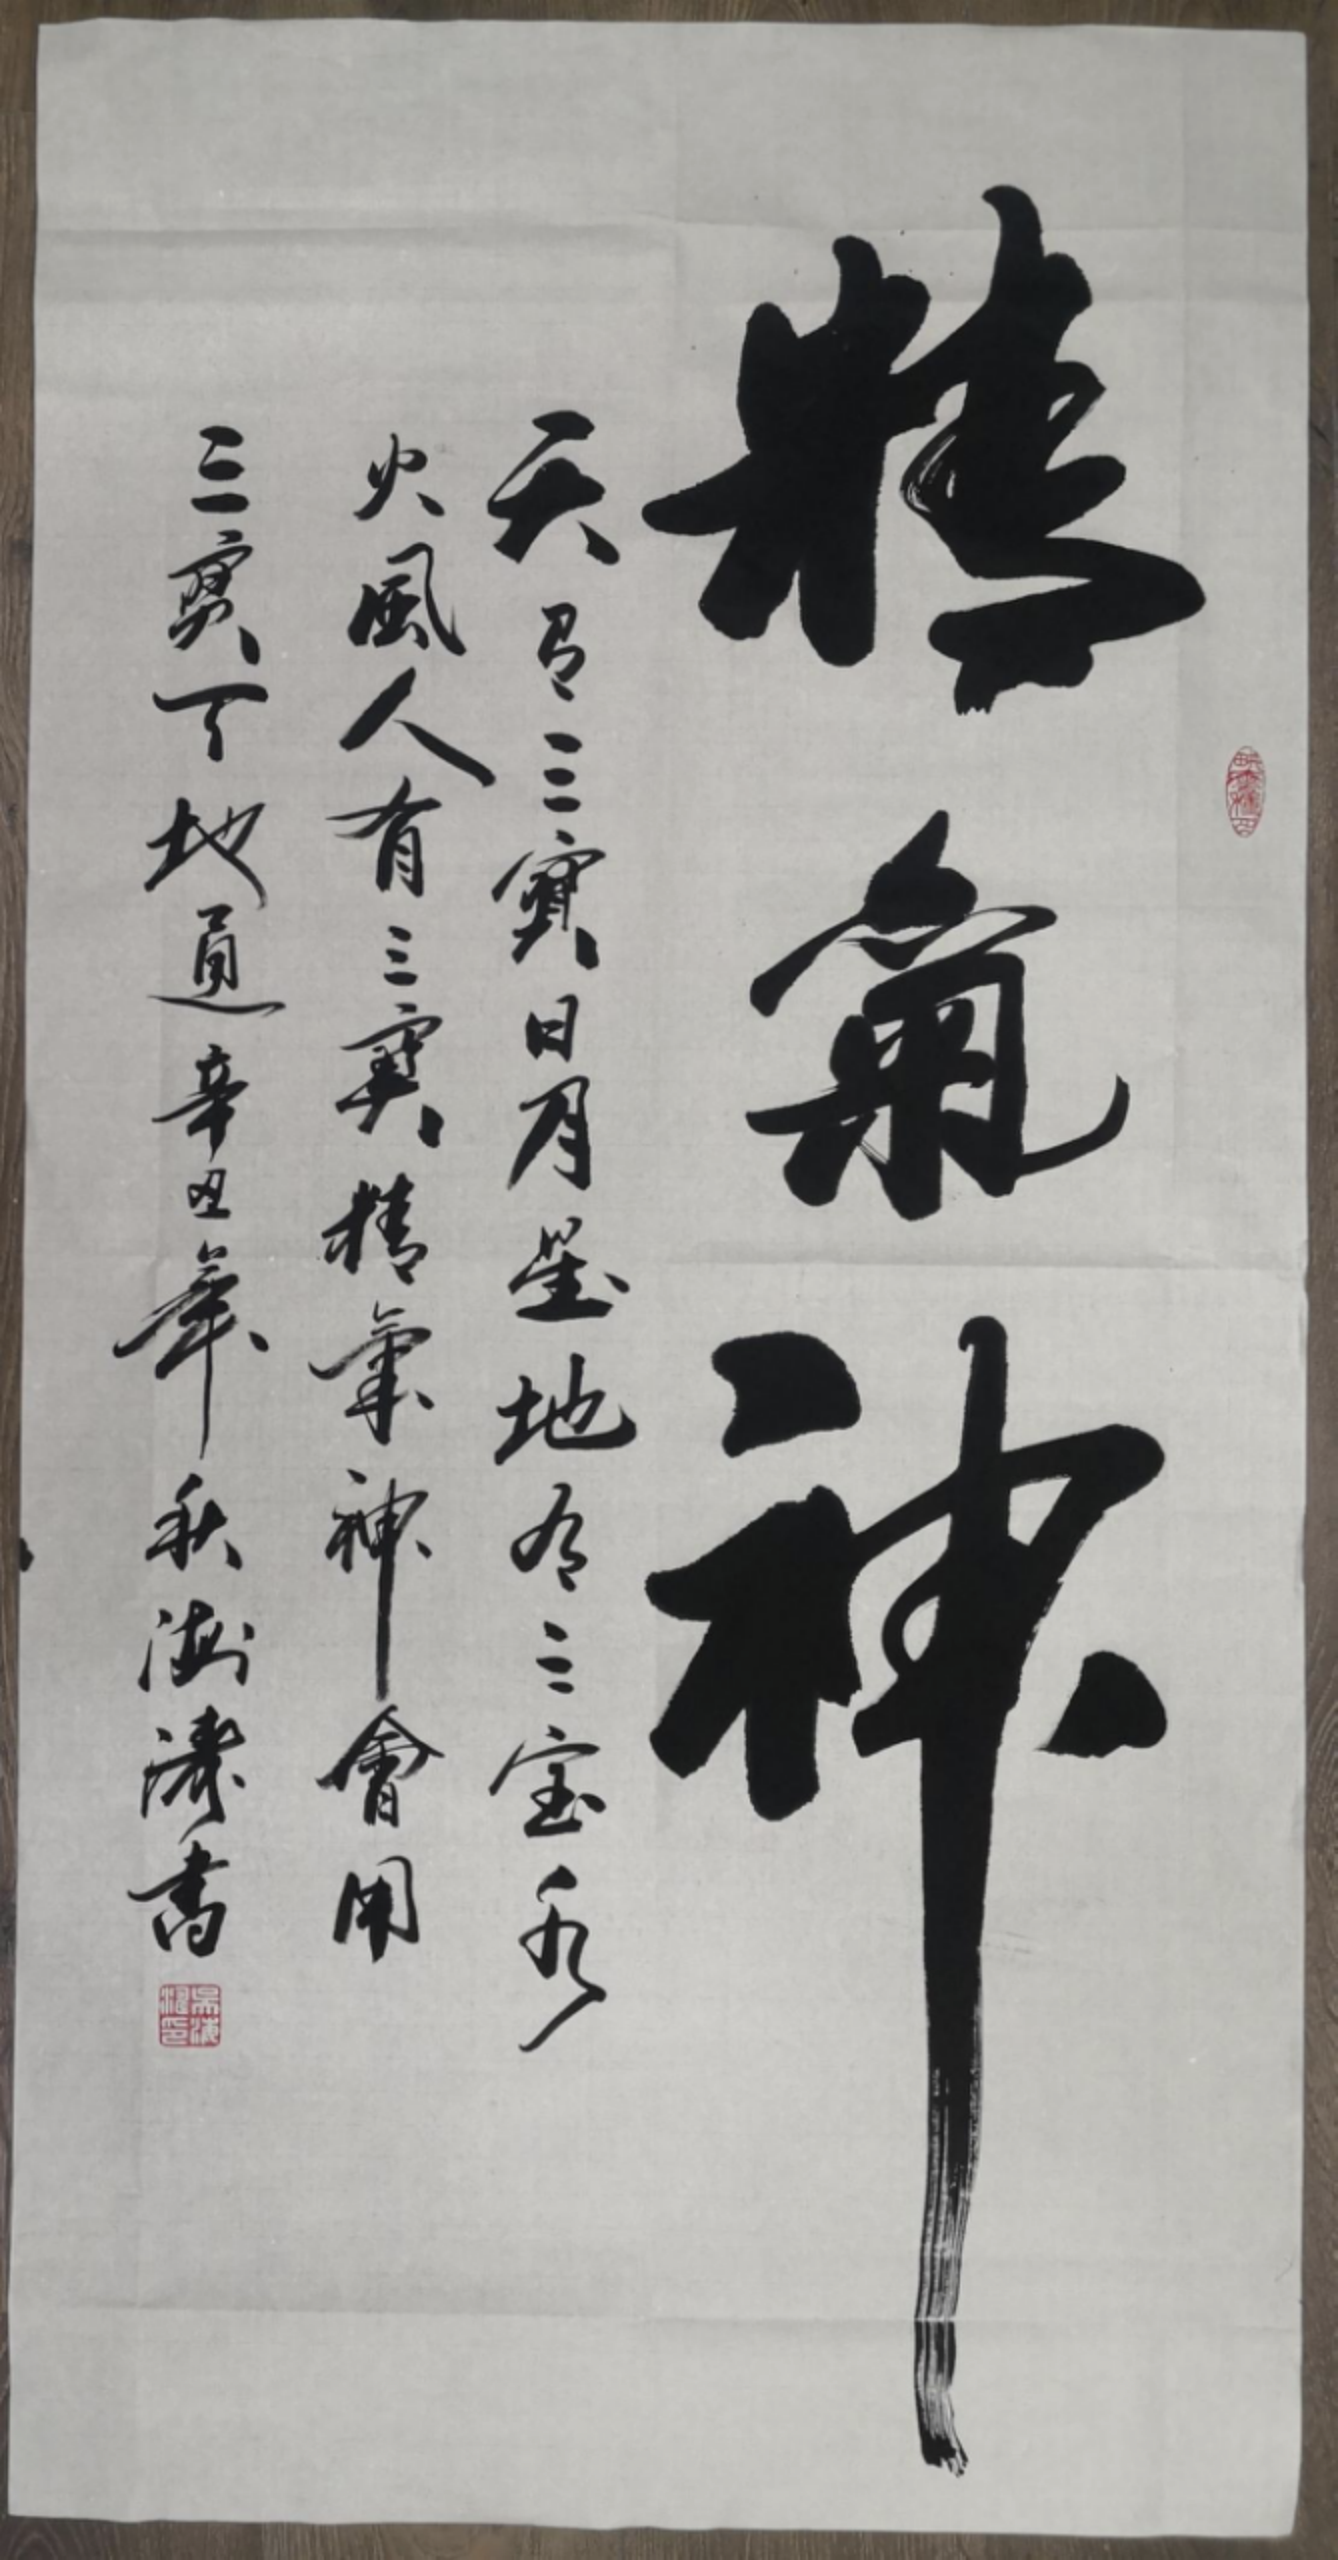 精氣神
天有三寶日月星地有三宝水
火風人有三寶精氣神會用
三寶天地通辛丑年秋海濤書